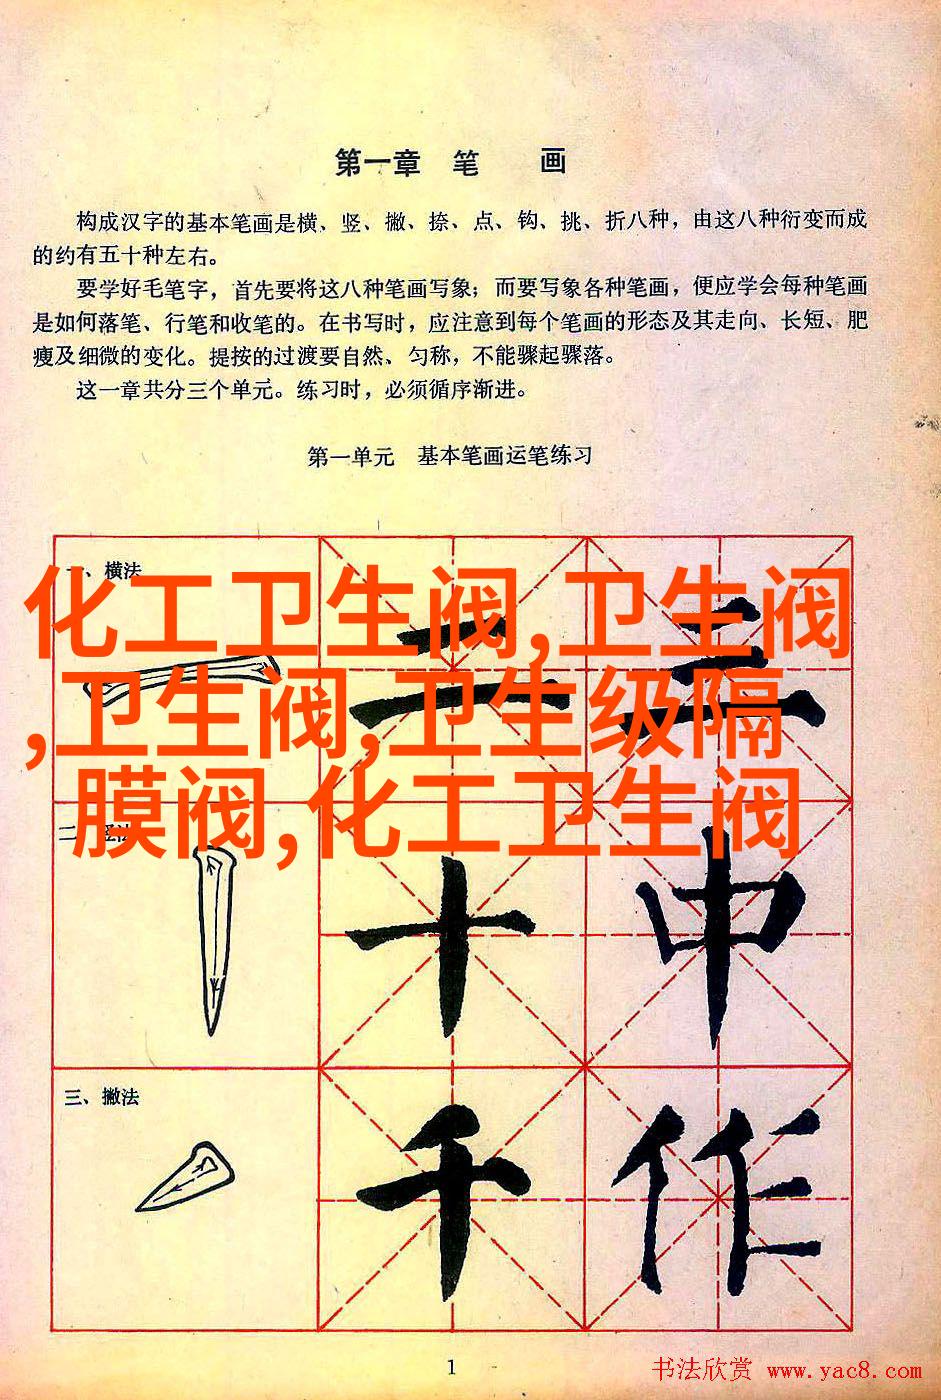 第一章 笔 画
构成汉字的基本笔画是横、竖、撇、捺、点、钩、挑、折八种，由这八种衍变而成
的约有五十种左右。
要学好毛笔字，首先要将这八种笔画写象；而要写象各种笔画，便应学会每种笔画
是如何落笔、行笔和收笔的。在书写时，应注意到每个笔画的形态及其走向、长短、肥
瘦及细微的变化。提按的过渡要自然、匀称，不能骤起骤落。
这一章共分三个单元。练习时，必须循序渐进。
第一单元 基本笔画运笔练习
一、横法
化工卫生阀,卫生阀
,卫生阀,卫生级隔
膜阀,化工卫生阀
二 三
二、竖法
十 中
三、撇法
千 作
1
书法欣赏 www.yac8.com